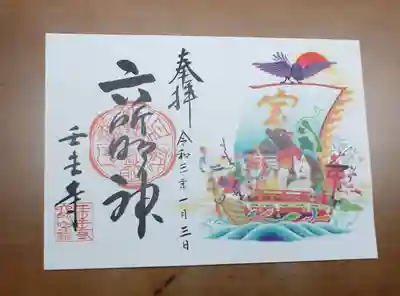 宝
奉拝
令和三年一月三日
六所明神
壬生寺